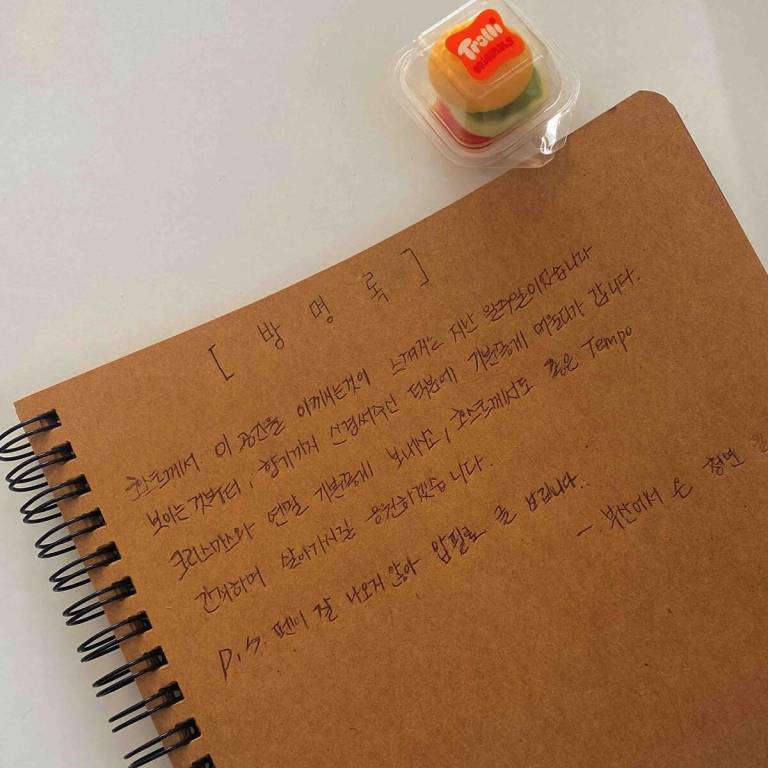 Trolli
[ 방 명 록 ]
호스트께서 이 공간을 아끼시는것이 느껴지는 지난 일주일이었습니다
보이는것부터, 향기까지 신경써주신 덕분에 기분좋게 머물다가 갑니다.
크리스마스와 연말 기분좋게 보내시고, 호스트께서도 좋은 Tempo
간직하며 살아가시길 응원하겠습니다.
P.S. 펜이 잘 나오지 않아 압필로 글 보냅니다..
- 부산에서 온 청년